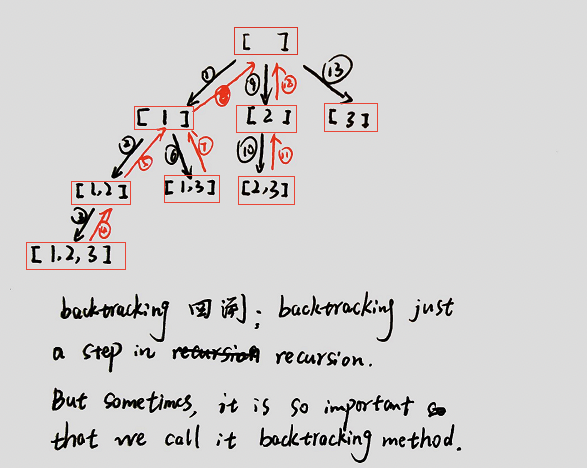 [ ]
① ⑧ ⑨ ⑫ ⑬
[ 1 ] [ 2 ] [ 3 ]
② ⑤ ⑥ ⑦ ⑩ ⑪
[ 1,2 ] [ 1,3 ] [ 2,3 ]
③ ④
[ 1,2,3 ]
backtracking 回溯; backtracking just
a step in recursion recursion.
But sometimes, it is so important so
that we call it backtracking method.